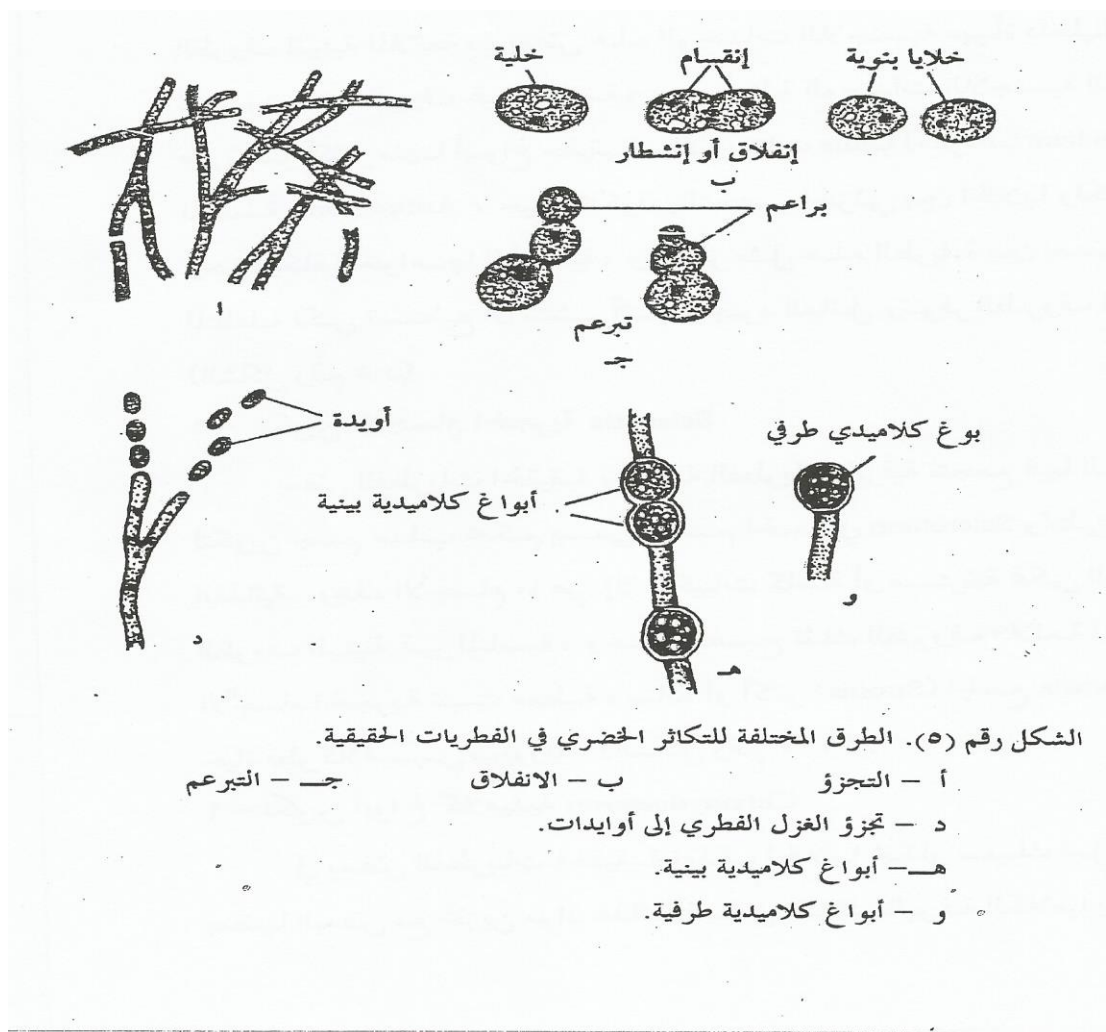 خلايا بنوية
إنقسام
خلية
إنفلاق أو إنشطار
ب
براعم
تبرعم
جـ
ا
أويدة
د
بوغ كلاميدي طرفي
و
أبواغ كلاميدية بينية
هـ
الشكل رقم (٥). الطرق المختلفة للتكاثر الخضري في الفطريات الحقيقية.
أ – التجزؤ ب – الانفلاق جـ – التبرعم
د – تجزؤ الغزل الفطري إلى أوايدات.
هـ – أبواغ كلاميدية بينية.
و – أبواغ كلاميدية طرفية.